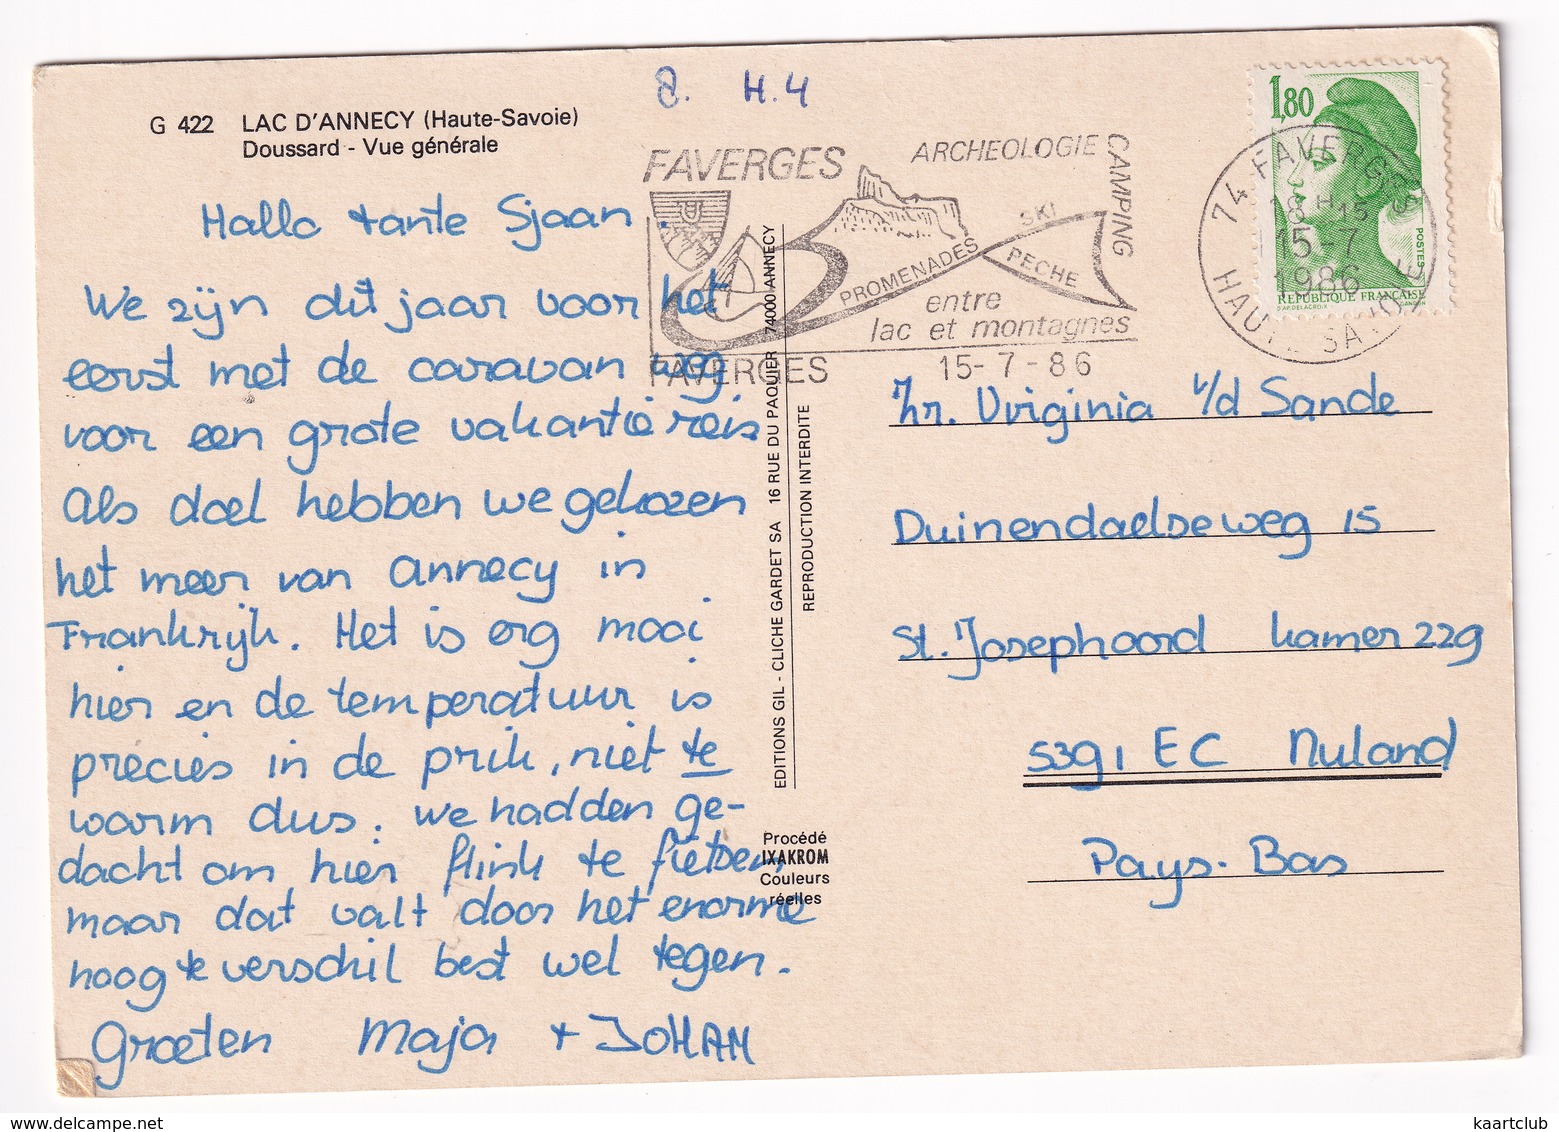 8. H.4
G 422 LAC D'ANNECY (Haute-Savoie)
Doussard - Vue générale
1,80
POSTES
RÉPUBLIQUE FRANÇAISE
D'AP. DELACROIX GANDON
FAVERGES
ARCHEOLOGIE
CAMPING
SKI
PECHE
PROMENADES
entre
lac et montagnes
FAVERGES 15-7-86
74 FAVERGES
18 H 15
15-7
1986
HAUTE SAVOIE
Hallo tante Sjaan.
We zijn dit jaar voor het
eerst met de caravan weg
voor een grote vakantiereis
Als doel hebben we gekozen
het meer van Annecy in
Frankrijk. Het is erg mooi
hier en de temperatuur is
precies in de prik, niet te
warm dus. We hadden ge-
dacht om hier flink te fietsen
maar dat valt door het enorme
hoogteverschil best wel tegen.
Groeten Maja + JOHAN
EDITIONS GIL - CLICHE GARDET SA 16 RUE DU PAQUIER 74000 ANNECY
REPRODUCTION INTERDITE
Procédé
IXAKROM
Couleurs
réelles
Zr. Virginia v/d Sande
Duinendaelseweg 15
St. Josephoord kamer 229
5391 EC Nuland
Pays-Bas
kaartclub